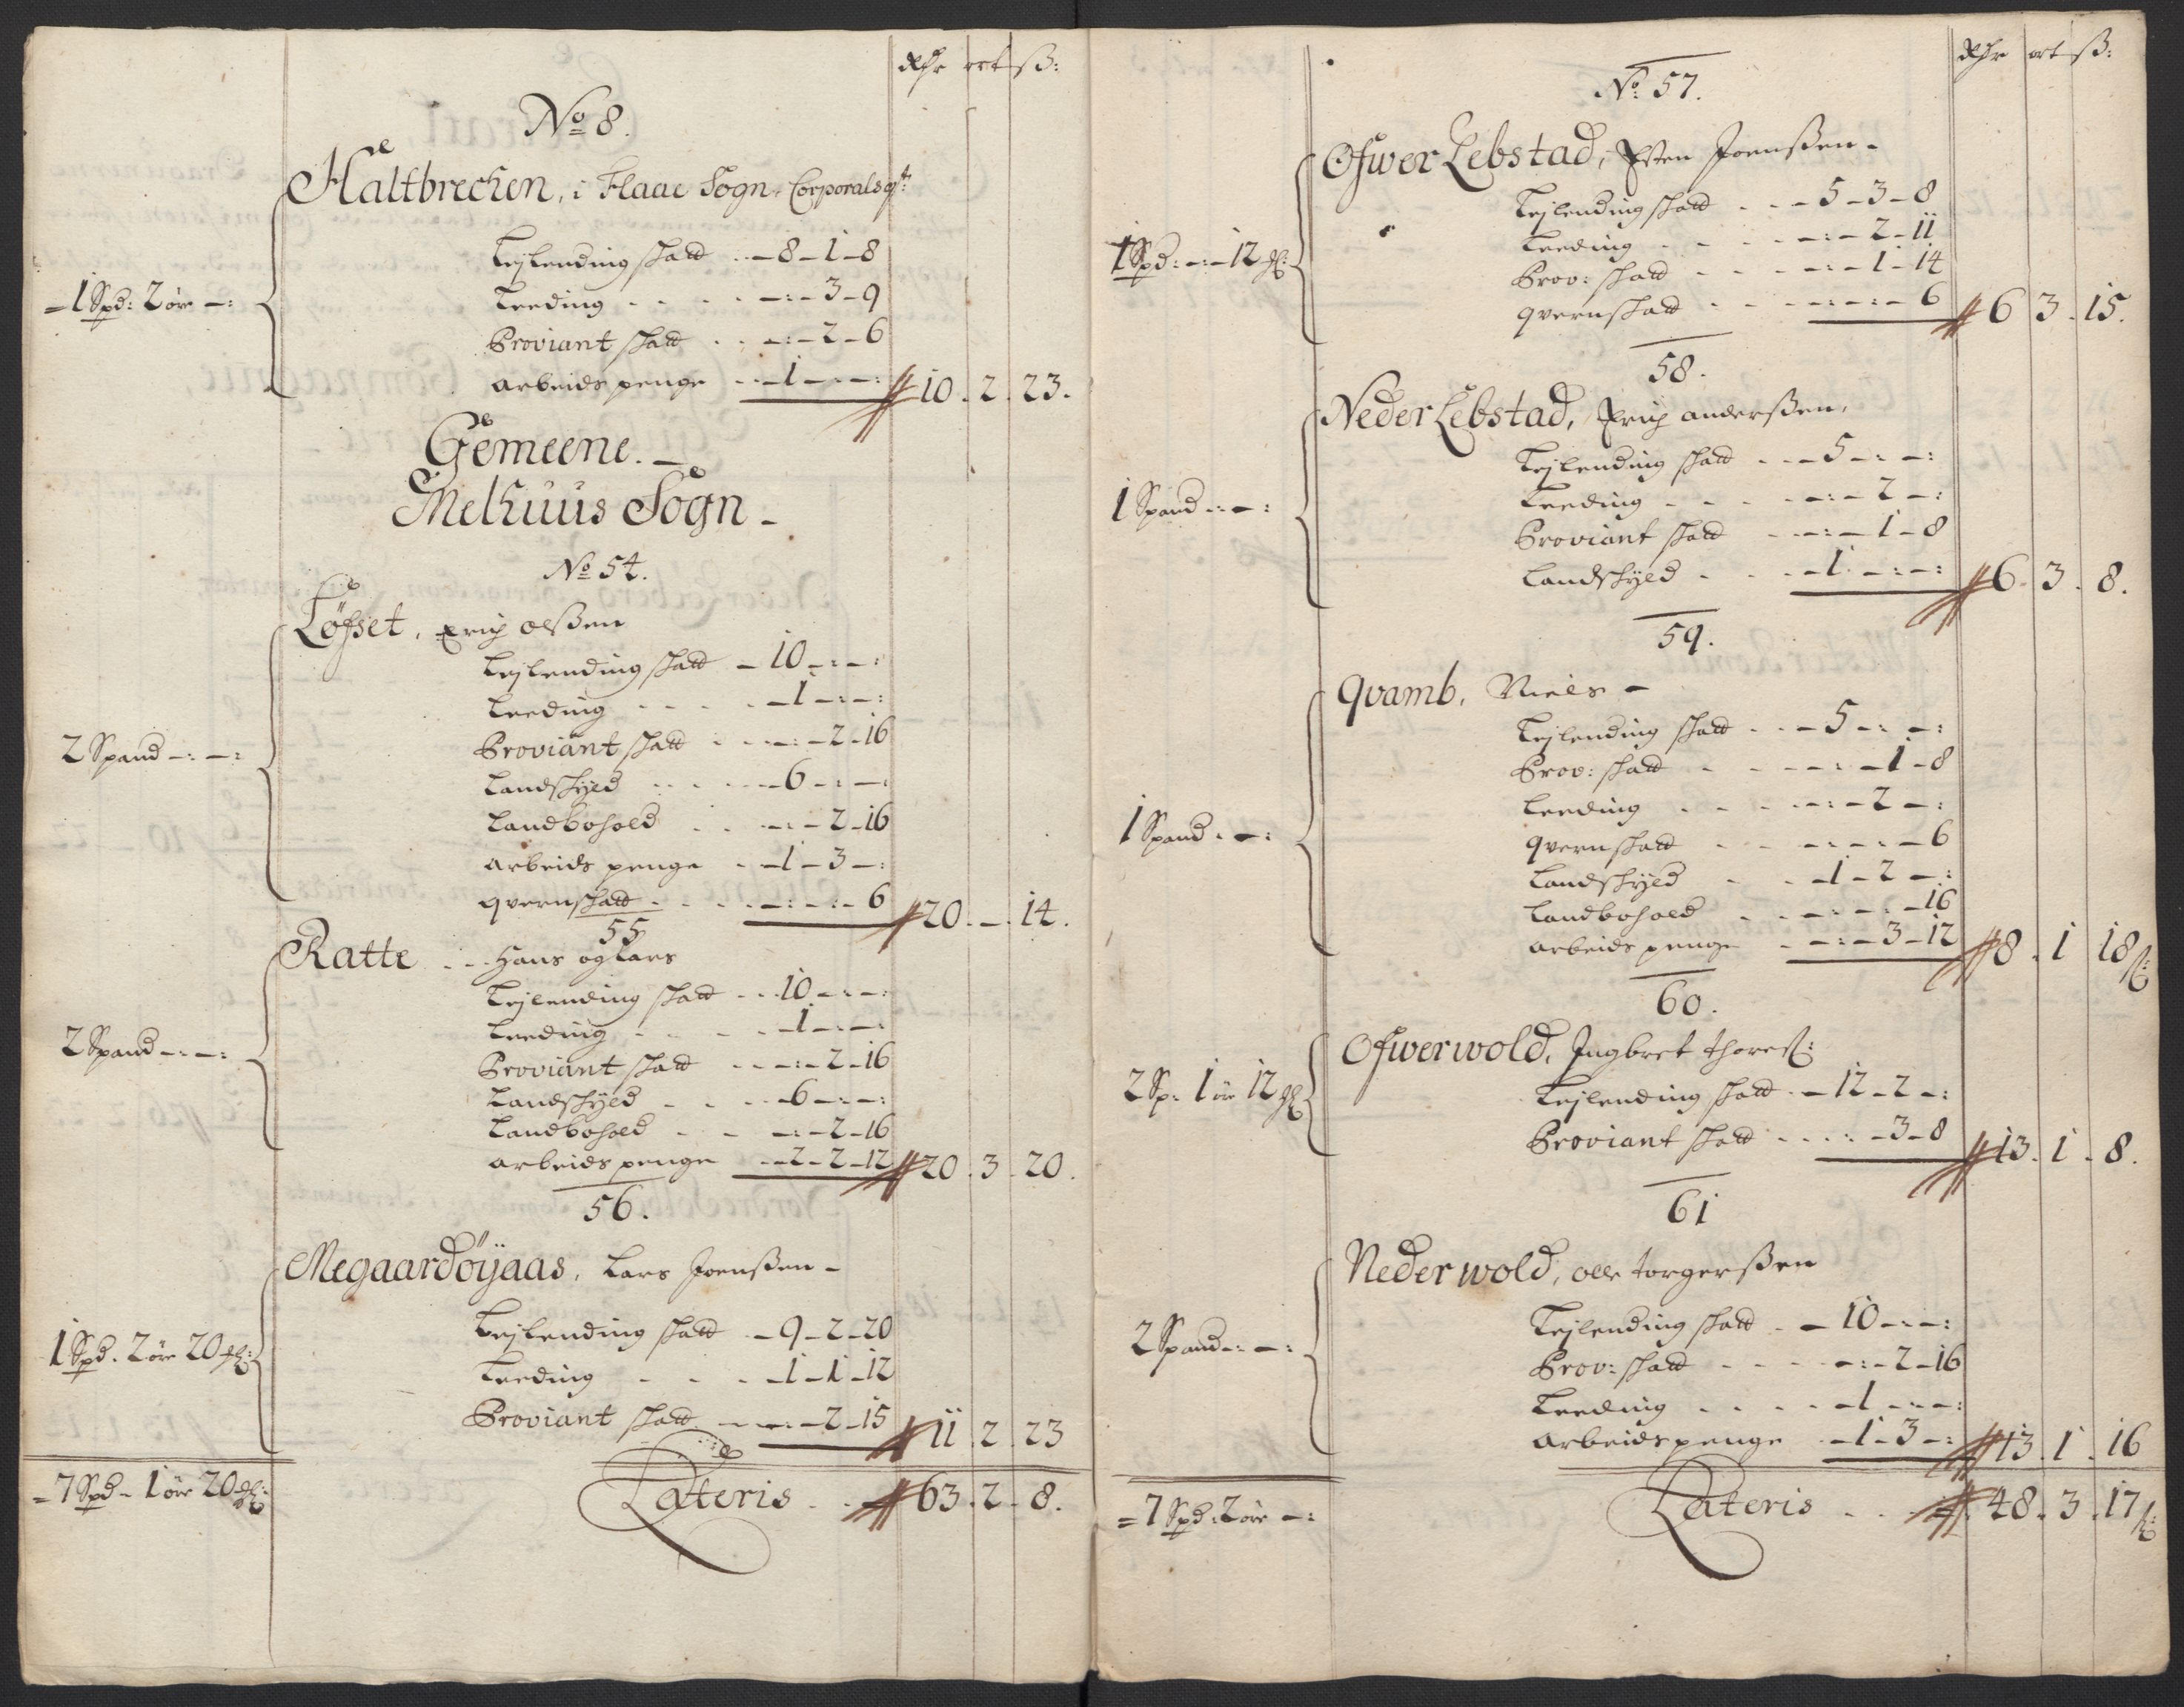 Rdr ort ß:
No 8.
Haltbrechen, i Flaae Sogn, Corporals qt:
1 Spd: 2 öre -:
Lejlending skatt - 8 - 1 - 8
Leeding - : - 3 - 9
Proviant skatt - : - 2 - 6
arbeids penge - 1 - : - : 10 . 2 . 23.
Gemeene. -
Melhuus Sogn -
No 54.
Löfset, Erich olßen
2 Spand - : - :
Lejlending skatt - 10 - : - :
Leeding - 1 - : - :
Proviant skatt - : - 2 - 16
Landskyld - 6 - : - :
Landbohold - : - 2 - 16
arbeids penge - 1 - 3 - :
qvernskatt - : - : - 6 20 . - . 14.
55
Ratte - - Hans og Lars
2 Spand - : - :
Lejlending skatt - 10 - : - :
Leeding - 1 - : - :
Proviant skatt - : - 2 - 16
Landskyld - 6 - : - :
Landbohold - : - 2 - 16
arbeids penge - 2 - 2 - 12 20 . 3 . 20.
56.
Megaardöÿaas, Lars Joenßen -
1 Spd. 2 öre 20 ml:
Lejlending skatt - 9 - 2 - 20
Leeding - 1 - 1 - 12
Proviant skatt - : - 2 - 15 11 . 2 . 23
= 7 Spd - 1 öre 20 ml: Lateris - - 63 . 2 . 8.
Rdr ort ß:
No: 57.
Ofwer Lebstad, Esten Joenßen -
1 Spd: - : - 12 ml:
Lejlending skatt - 5 - 3 - 8
Leeding - : - 2 - 11
Prov: skatt - : - 1 - 14
qvernskatt - : - : - 6 6 3 . 15.
58.
Neder Lebstad, Erich anderßen,
1 Spand - : - :
Lejlending skatt - 5 - : - :
Leeding - : - 2 - :
Proviant skatt - : - 1 - 8
Landskyld - 1 - : - : 6 . 3 . 8.
59.
Qvamb, Niels -
1 Spand - - :
Lejlending skatt - 5 - : - :
Prov: skatt - : - 1 - 8
Leeding - : - 2 - :
qvernskatt - : - : - 6
Landskyld - 1 - 2 - :
Landbohold - : - : - 16
arbeids penge - : - 3 - 12 8 . 1 18 ß:
60.
Ofwerwold, Ingbret Thoreß:
2 Sp: 1 öre 12 ml:
Lejlending skatt - 12 - 2 - :
Proviant skatt - : - 3 - 8 13 . 1 . 8.
61
Nederwold, olle torgerßen
2 Spand - : - :
Lejlending skatt - 10 - : - :
Prov: skatt - : - 2 - 16
Leeding - 1 - : - :
arbeidspenge - 1 - 3 - : 13 . 1 . 16
= 7 Spd: 2 öre - : Lateris - - 48 . 3 . 17 ß: